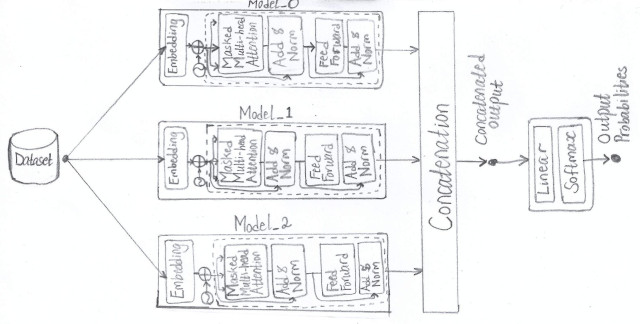 Model_0
Embedding
Masked
Multi-head
Attention
Add &
Norm
Feed
Forward
Add &
Norm
Dataset
Model_1
Embedding
Masked
Multi-head
Attention
Add &
Norm
Feed
Forward
Add &
Norm
Model_2
Embedding
Masked
Multi-head
Attention
Add &
Norm
Feed
Forward
Add &
Norm
Concatenation
Concatenated
output
Linear
Softmax
Output
Probabilities